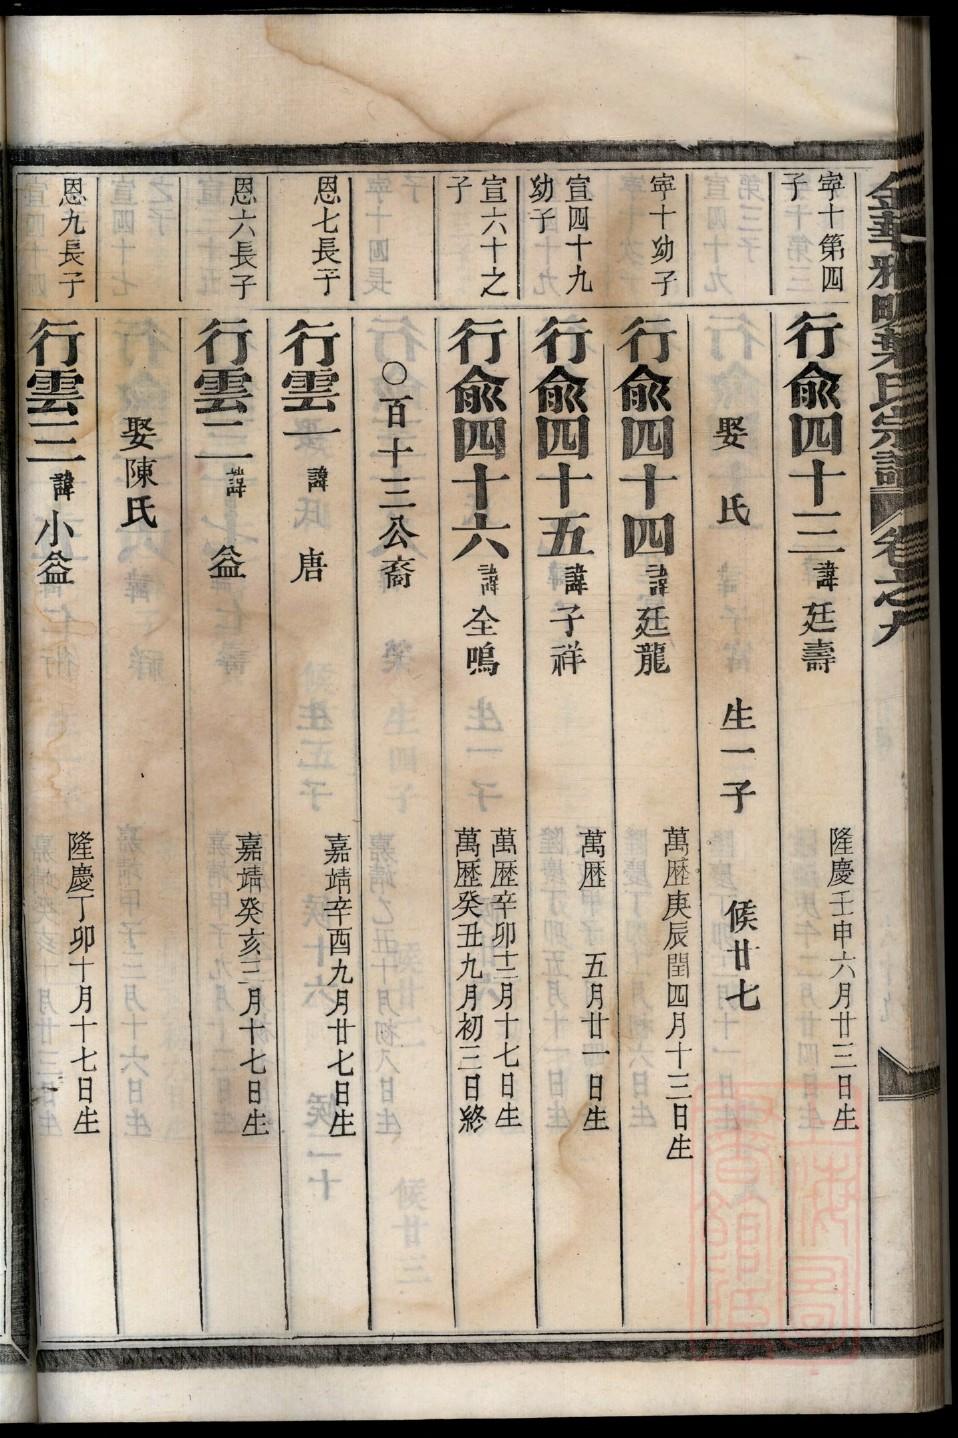 金華雅畈葉氏宗譜 卷之九
寜十第四子
行兪四十三 諱廷壽 隆慶壬申六月廿三日生
娶 氏 生一子 候廿七
寜十幼子
行兪四十四 諱廷龍 萬歴庚辰閏四月十三日生
宣四十九幼子
行兪四十五 諱子祥 萬歴 五月廿一日生
宣六十之子
行兪四十六 諱全鳴 萬歴辛卯十二月十七日生
萬歴癸丑九月初三日終
○百十三公裔
恩七長子
行雲一 諱 唐 嘉靖辛酉九月廿七日生
恩六長子
行雲二 諱 益 嘉靖癸亥三月十七日生
娶陳氏
恩九長子
行雲三 諱小益 隆慶丁卯十月十七日生